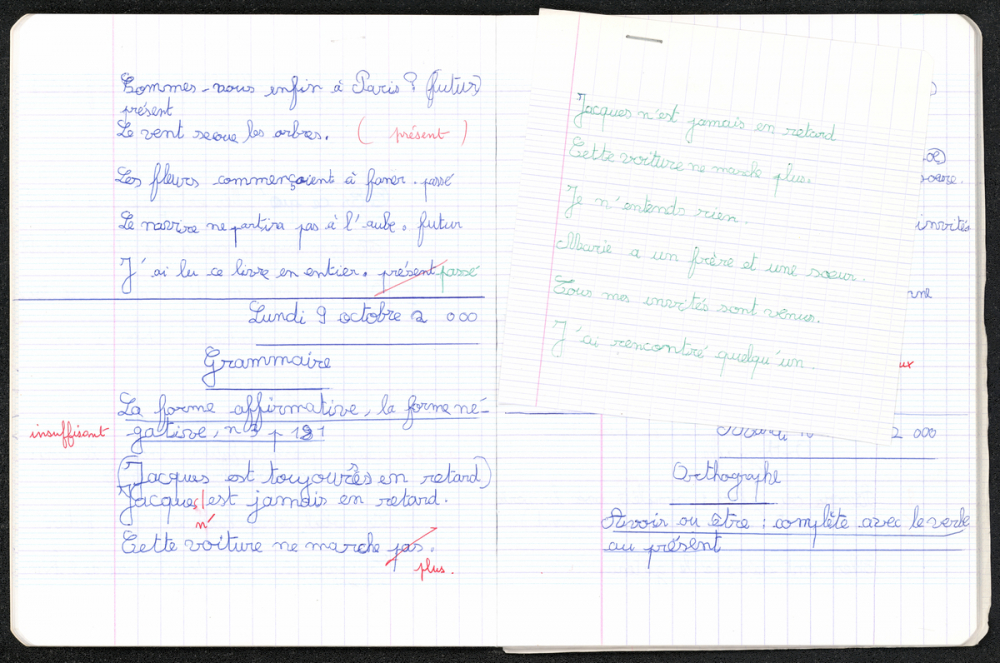 Sommes-nous enfin à Paris ? (futur)
présent
Le vent secoue les arbres. ( présent )
Les fleurs commençaient à faner. passé
Le navire ne partira pas à l'aube. futur
J'ai lu ce livre en entier. présent passé
Lundi 9 octobre 2 000
Grammaire
La forme affirmative, la forme né-
insuffisant gative, n°3 p 191
(Jacques est toujours en retard)
Jacques est jamais en retard.
n'
Cette voiture ne marche pas.
plus.
Jacques n'est jamais en retard
Cette voiture ne marche plus.
Je n'entends rien.
Marie a un frère et une soeur.
Tous mes invités sont venus.
J'ai rencontré quelqu'un.
invités
2 000
Orthographe
Avoir ou être : complète avec le verbe
au présent